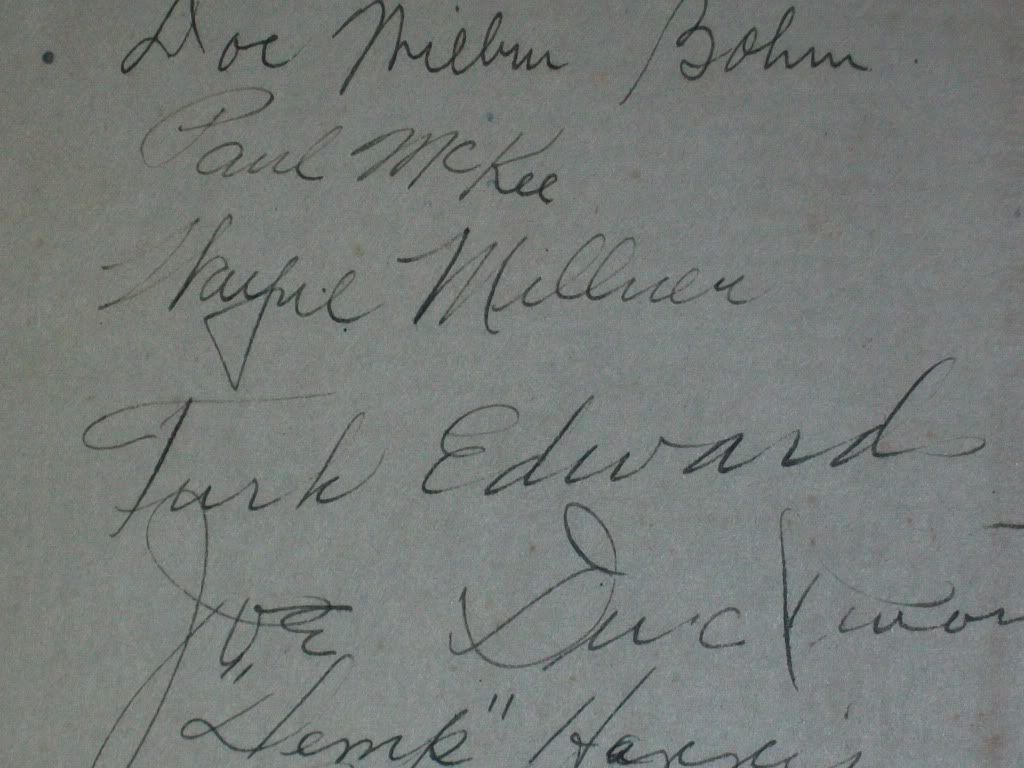 Doc Wilbur Bohm
Paul McKee
Wayne Millner
Turk Edwards
Joe Duckwor
"Hemp" Harris